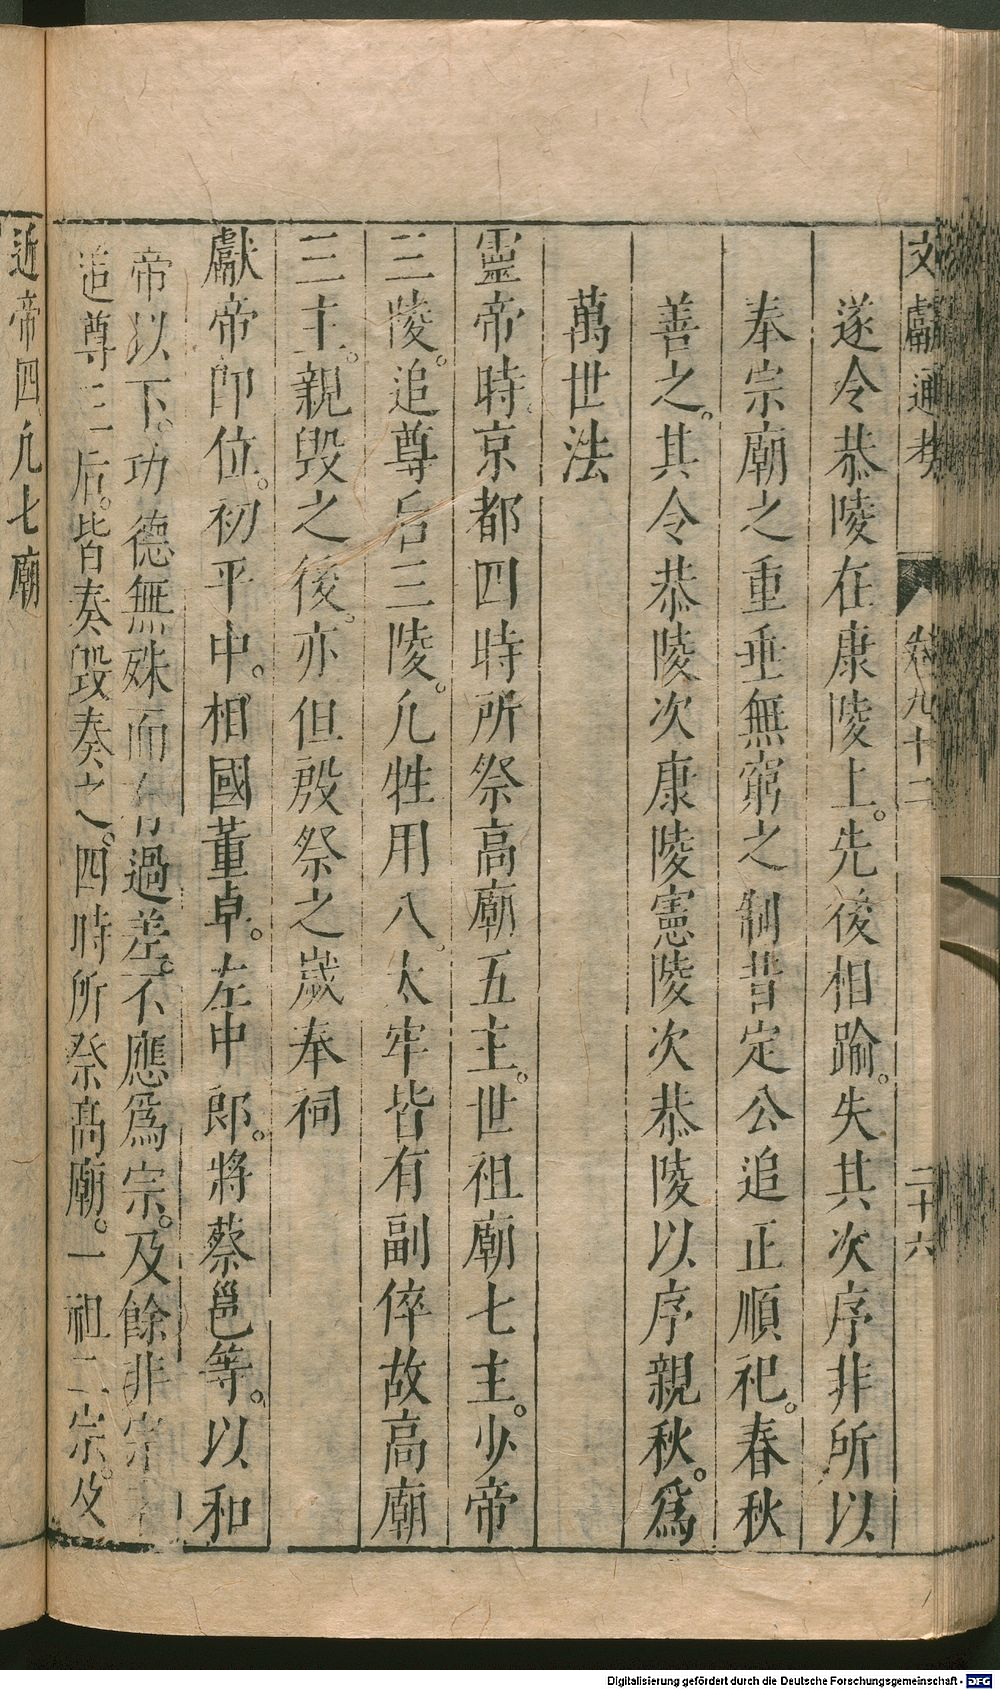 文獻通考 卷九十二 二十六
遂令恭陵在康陵上。先後相踰。失其次序非所以
奉宗廟之重垂無窮之制昔定公追正順祀。春秋
善之。其令恭陵次康陵憲陵次恭陵以序親秩。爲
萬世法
靈帝時京都四時所祭高廟五主。世祖廟七主。少帝
三陵。追尊后三陵。凢牲用八。太牢皆有副倅故高廟
三主。親毁之後。亦但殷祭之嵗奉祠
獻帝卽位。初平中。相國董卓。左中郎。將蔡邕等。以和
帝以下。功德無殊而有過差。不應爲宗。及餘非宗
追尊三后。皆奏毀奏之。四時所祭高廟。一祖二宗。及
近帝四凢七廟
Digitalisierung gefördert durch die Deutsche Forschungsgemeinschaft - DFG